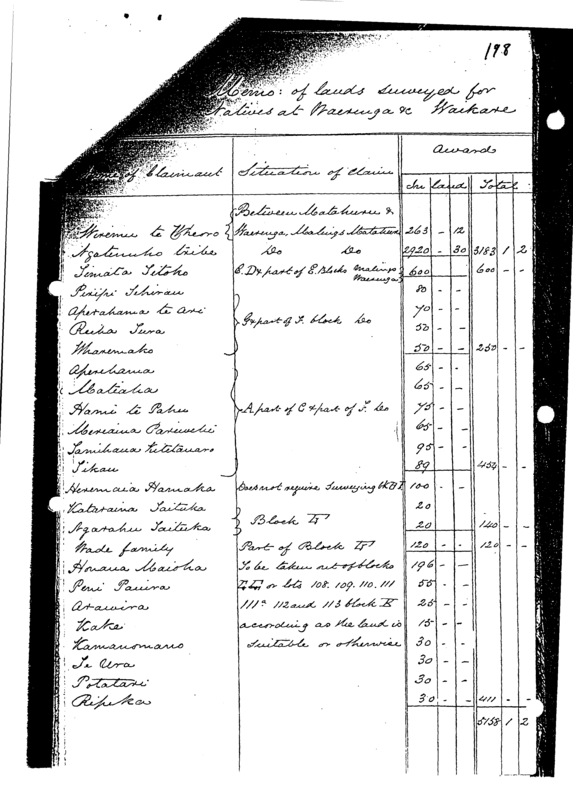 198
Memo: of lands surveyed for
Natives at Waerenga & Waikare
Name of Claimant Situation of Claim Award
In land Total
Between Matahuru &
Wiremu te Wheoro Waerenga, Matings 263 - 12
Ngatenaho tribe Do Do 2920 - 30 3183 1 2
Timata Titoko C. D & part of E. Blocks 600 600 - -
Waerenga
Piripi Tehirau 80 - -
Aperahama te Ari G & part of F. block Do 70 - -
Reiha Tura 50 - -
Wharemako 50 - - 250 - -
Aperehama 65 - -
Matiaha 65 - -
Hami te Pahu A part of C & part of F. Do 75 - -
65 - -
95 - -
Tikau 89 454 - -
Heremaia Hamaka Does not require Surveying 100 - -
Kataraina Taituka 20
Ngarahu Taituka Block 20 140 - -
Wade family Part of Block 120 - - 120 - -
Honana Maioha To be taken out of blocks 196 - -
Peni Pauira or lots 108. 109. 110. 111 55 - -
Arawira 111a 112 and 113 block 25 - -
Kake according as the land is 15 - -
Kamanomano suitable or otherwise 30 - -
Te Ura 30 - -
Potatari 30 - -
Ripeka 30 - - 411 - -
5158 1 2